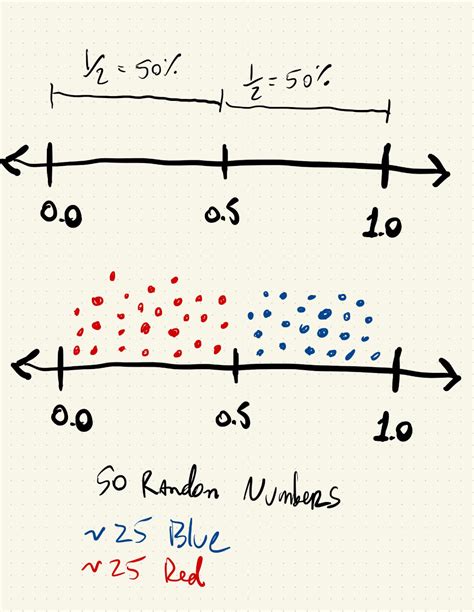 1/2 = 50%
1/2 = 50%
0.0 0.5 1.0
0.0 0.5 1.0
50 Random Numbers
~25 Blue
~25 Red